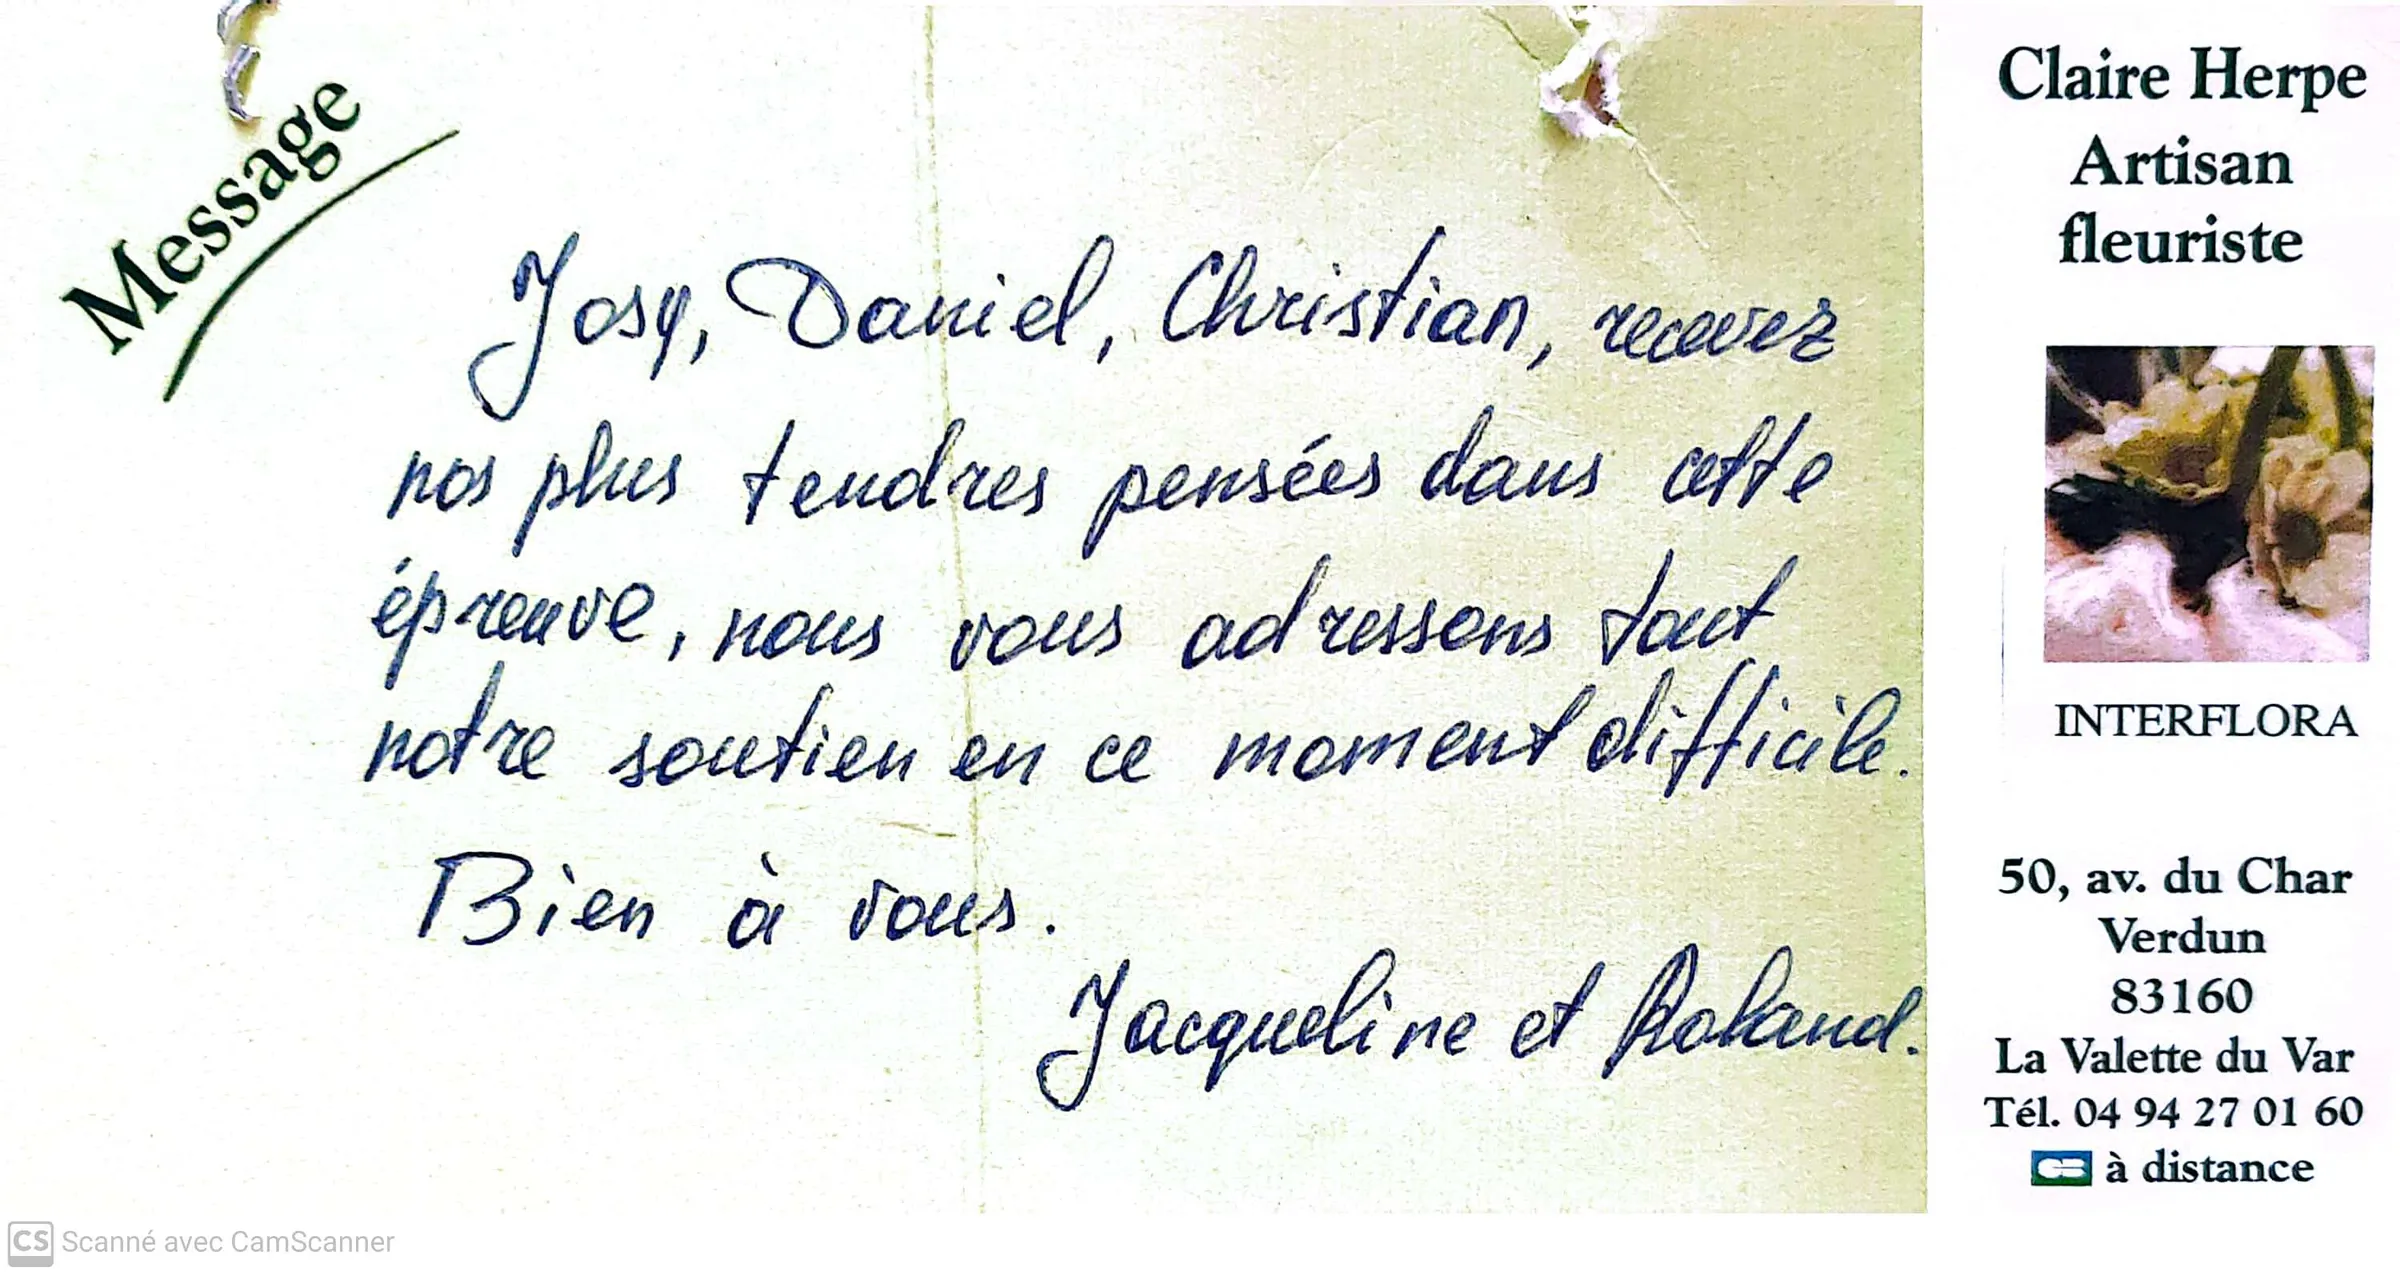 Message
Josy, Daniel, Christian, recevez
nos plus tendres pensées dans cette
épreuve, nous vous adressons tout
notre soutien en ce moment difficile.
Bien à vous.
Jacqueline et Roland.
Claire Herpe
Artisan
fleuriste
INTERFLORA
50, av. du Char
Verdun
83160
La Valette du Var
Tél. 04 94 27 01 60
CB à distance
CS Scanné avec CamScanner